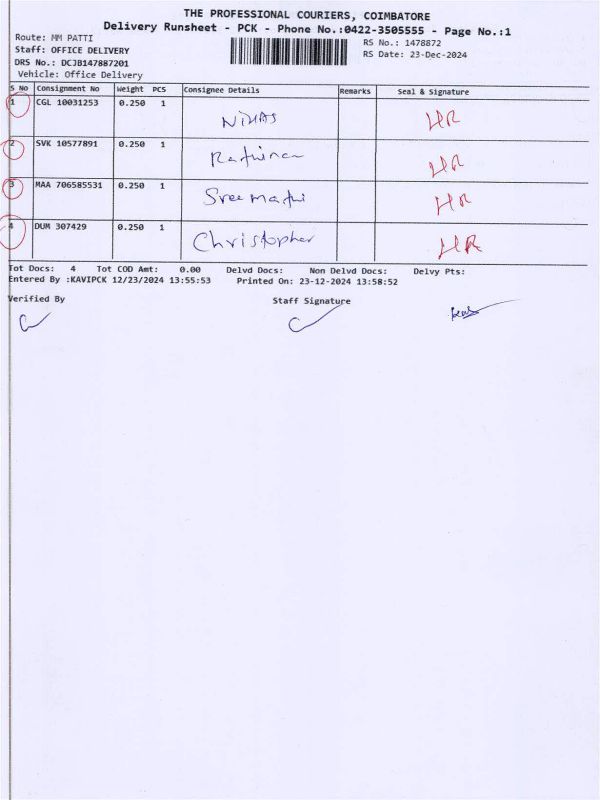 THE PROFESSIONAL COURIERS, COIMBATORE
Delivery Runsheet - PCK - Phone No.:0422-3505555 - Page No.:1
Route: MM PATTI
RS No.: 1478872
Staff: OFFICE DELIVERY
RS Date: 23-Dec-2024
DRS No.: DCJB147887201
Vehicle: Office Delivery
S No Consignment No Weight PCS Consignee Details Remarks Seal & Signature
1 CGL 10031253 0.250 1 NiHAS HR
2 SVK 10577891 0.250 1 HR
3 MAA 706585531 0.250 1 Sreemathi HR
4 DUM 307429 0.250 1 Christopher HR
Tot Docs: 4 Tot COD Amt: 0.00 Delvd Docs: Non Delvd Docs: Delvy Pts:
Entered By :KAVIPCK 12/23/2024 13:55:53 Printed On: 23-12-2024 13:58:52
Verified By Staff Signature